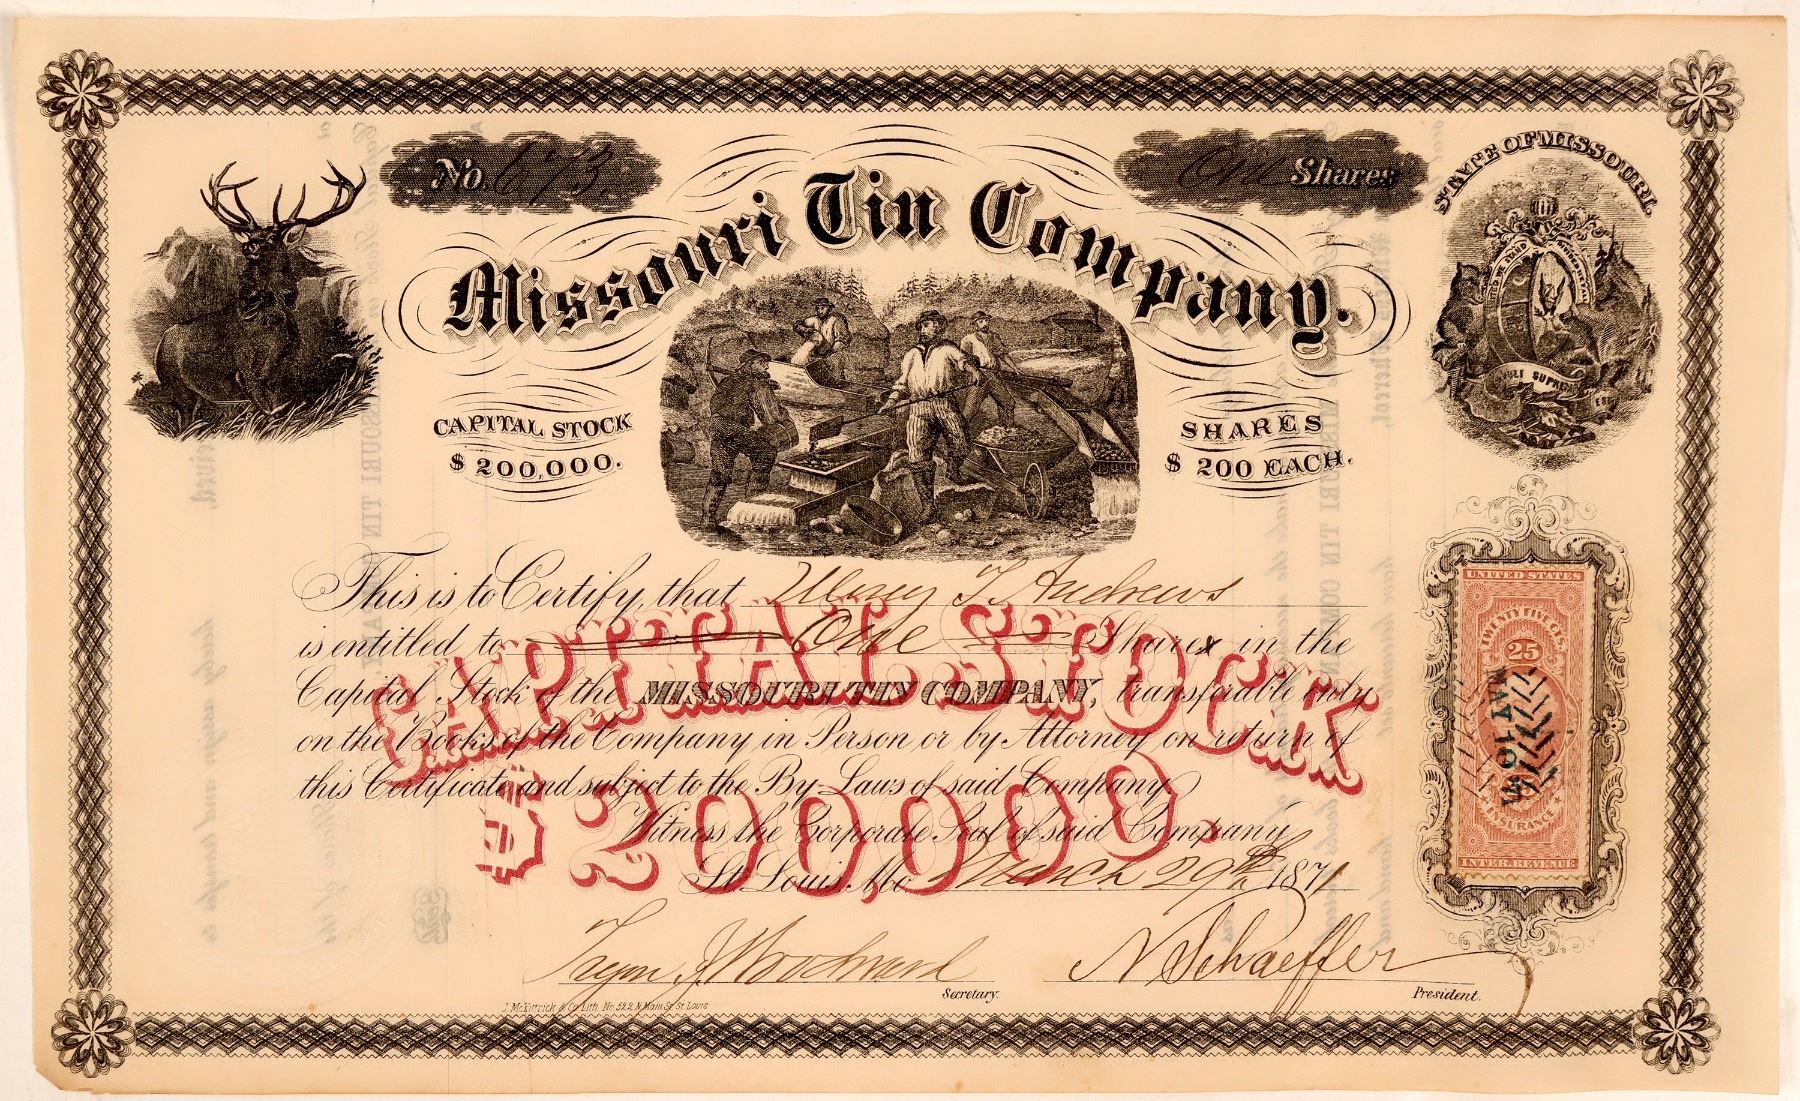 No. 673.
One Shares
STATE OF MISSOURI.
Missouri Tin Company.
CAPITAL STOCK
$ 200,000.
SHARES
$ 200 EACH.
This is to Certify, that Mary T Andrews
is entitled to One Share in the
Capital Stock of the MISSOURI TIN COMPANY, transferable only
on the Books of the Company in Person or by Attorney on return of
this Certificate and subject to the By-Laws of said Company.
Witness the Corporate Seal of said Company
St Louis, Mo March 29th 1871
CAPITAL STOCK
$200,000.
UNITED STATES
TWENTY FIVE CTS.
25
INSURANCE
INTER. REVENUE
J Woodward
Secretary.
N Schaeffer
President.
J. McKittrick & Co Lith. No. 522 N. Main St. St. Louis